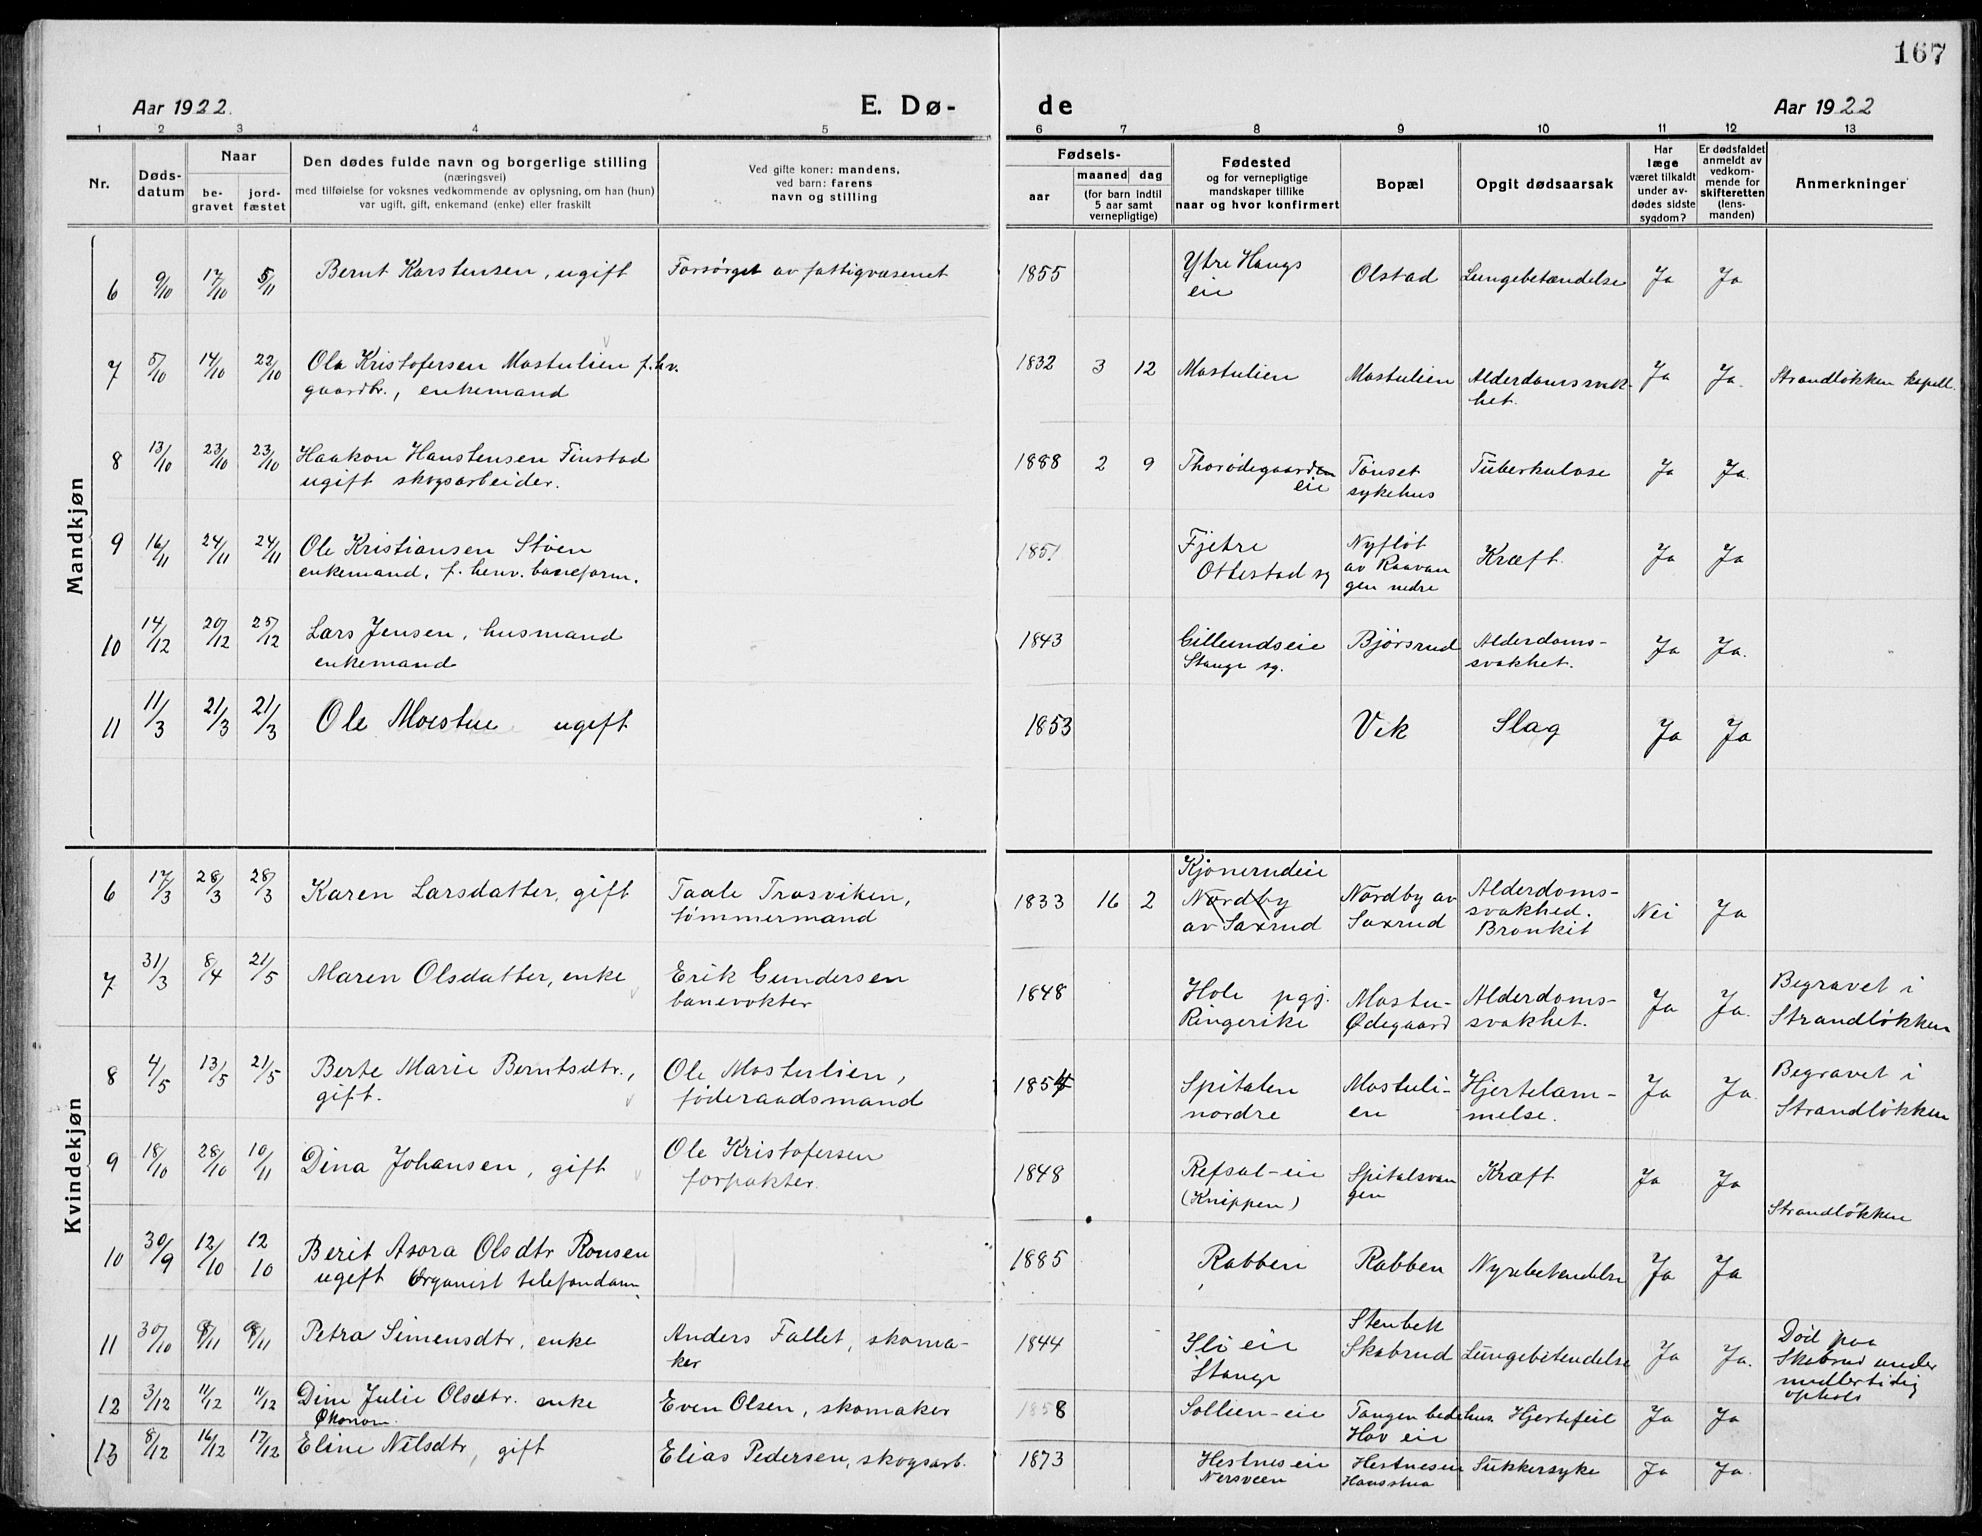 167
Aar 1922.
E. Dø-
de
Aar 1922
1 2 3 4 5 6 7 8 9 10 11 12 13
Nr.
Døds-
datum
Naar
be-
gravet
jord-
fæstet
Den dødes fulde navn og borgerlige stilling
(næringsvei)
med tilføielse for voksnes vedkommende av oplysning, om han (hun)
var ugift, gift, enkemand (enke) eller fraskilt
Ved gifte koner: mandens,
ved barn: farens
navn og stilling
Fødsels-
aar
maaned dag
(for barn indtil
5 aar samt
vernepligtige)
Fødested
og for vernepligtige
mandskaper tillike
naar og hvor konfirmert
Bopæl
Opgit dødsaarsak
Har
læge
været tilkaldt
under av-
dødes sidste
sygdom?
Er dødsfaldet
anmeldt av
vedkom-
mende for
skifteretten
(lens-
manden)
Anmerkninger
Mandkjøn
6 9/10 17/10 5/11 Bernt Karstensen, ugift Forsørget av fattigvæsenet 1855 Ytre Haugs Olstad Lungebetændelse Ja Ja
eie
7 5/10 14/10 22/10 Ola Kristofersen Mostulien f.hv. 1832 3 12 Mostulien Mostulien Alderdomssvak- Ja Ja. Strandløkken kapell.
gaardbr., enkemand het.
8 13/10 23/10 23/10 Haakon Hanstensen Finstad 1888 2 9 Thorødegaarden Tønset Tuberkulose Ja Ja.
ugift skogsarbeider. eie sykehus
9 16/11 24/11 24/11 Ole Kristiansen Støen 1851 Fjetre Nyfløt Kræft. Ja Ja
enkemand, f. henv. baneform. Ottestad sg av Raavan
gen nedre
10 14/12 20/12 25/12 Lars Jensen, husmand 1843 Gillundseie Bjørsrud Alderdoms- Ja Ja.
enkemand Stange sg. svakhet.
11 11/3 21/3 21/3 Ole Moestue ugift 1853 Vik Slag Ja Ja
Kvindekjøn
Kjønerudeie
6 17/3 28/3 28/3 Karen Larsdatter, gift Taale Trasviken, 1833 16 2 Nordby Nordby av Alderdoms- Nei Ja
tømmermand av Saxrud Saxrud svakhed.
Bronkit
7 31/3 8/4 21/5 Maren Olsdatter, enke Erik Gundersen 1848 Hole pgj. Mostu- Alderdoms- Ja Ja. Begravet i
banevokter Ringerike Ødegaard svakhet. Strandløkken
8 4/5 13/5 21/5 Berte Marie Berntsdtr., Ole Mostulien, 1854 Spitalen Mostuli- Hjertelam- Ja Ja. Begravet i
gift. føderaadsmand nordre en melse. Strandløkken
9 18/10 28/10 10/11 Dina Johansen, gift Ole Kristofersen 1848 Refsal-eie Spitalsvan Kræft Ja Ja
forpakter. (Knippen) gen Strandløkken
10 30/9 12/10 12 10 Berit Asora Olsdtr Ronsen 1885 Rabben Rabben Nyrebetendelse Ja Ja
ugift Organist telefondam.
11 30/10 9/11 9/11 Petra Simensdtr, enke Anders Fallet, skoma- 1844 Sli eie Stenbek Lungebetendelse Ja Ja. Død paa
ker Stange Skabrud Skabrud under
midlertidig
ophold
12 3/12 11/12 11/12 Dina Julie Olsdtr. enke Even Olsen, skomaker 1858 Sollien-eie Tangen bedehus Hjertefeil Ja Ja
Økonom. Hov eie
13 8/12 16/12 17/12 Eline Nilsdtr, gift Elias Pedersen, skogsarb. 1873 Hestnes eie Hestnesen Sukkersyke Ja Ja.
Nersveen Hansstua